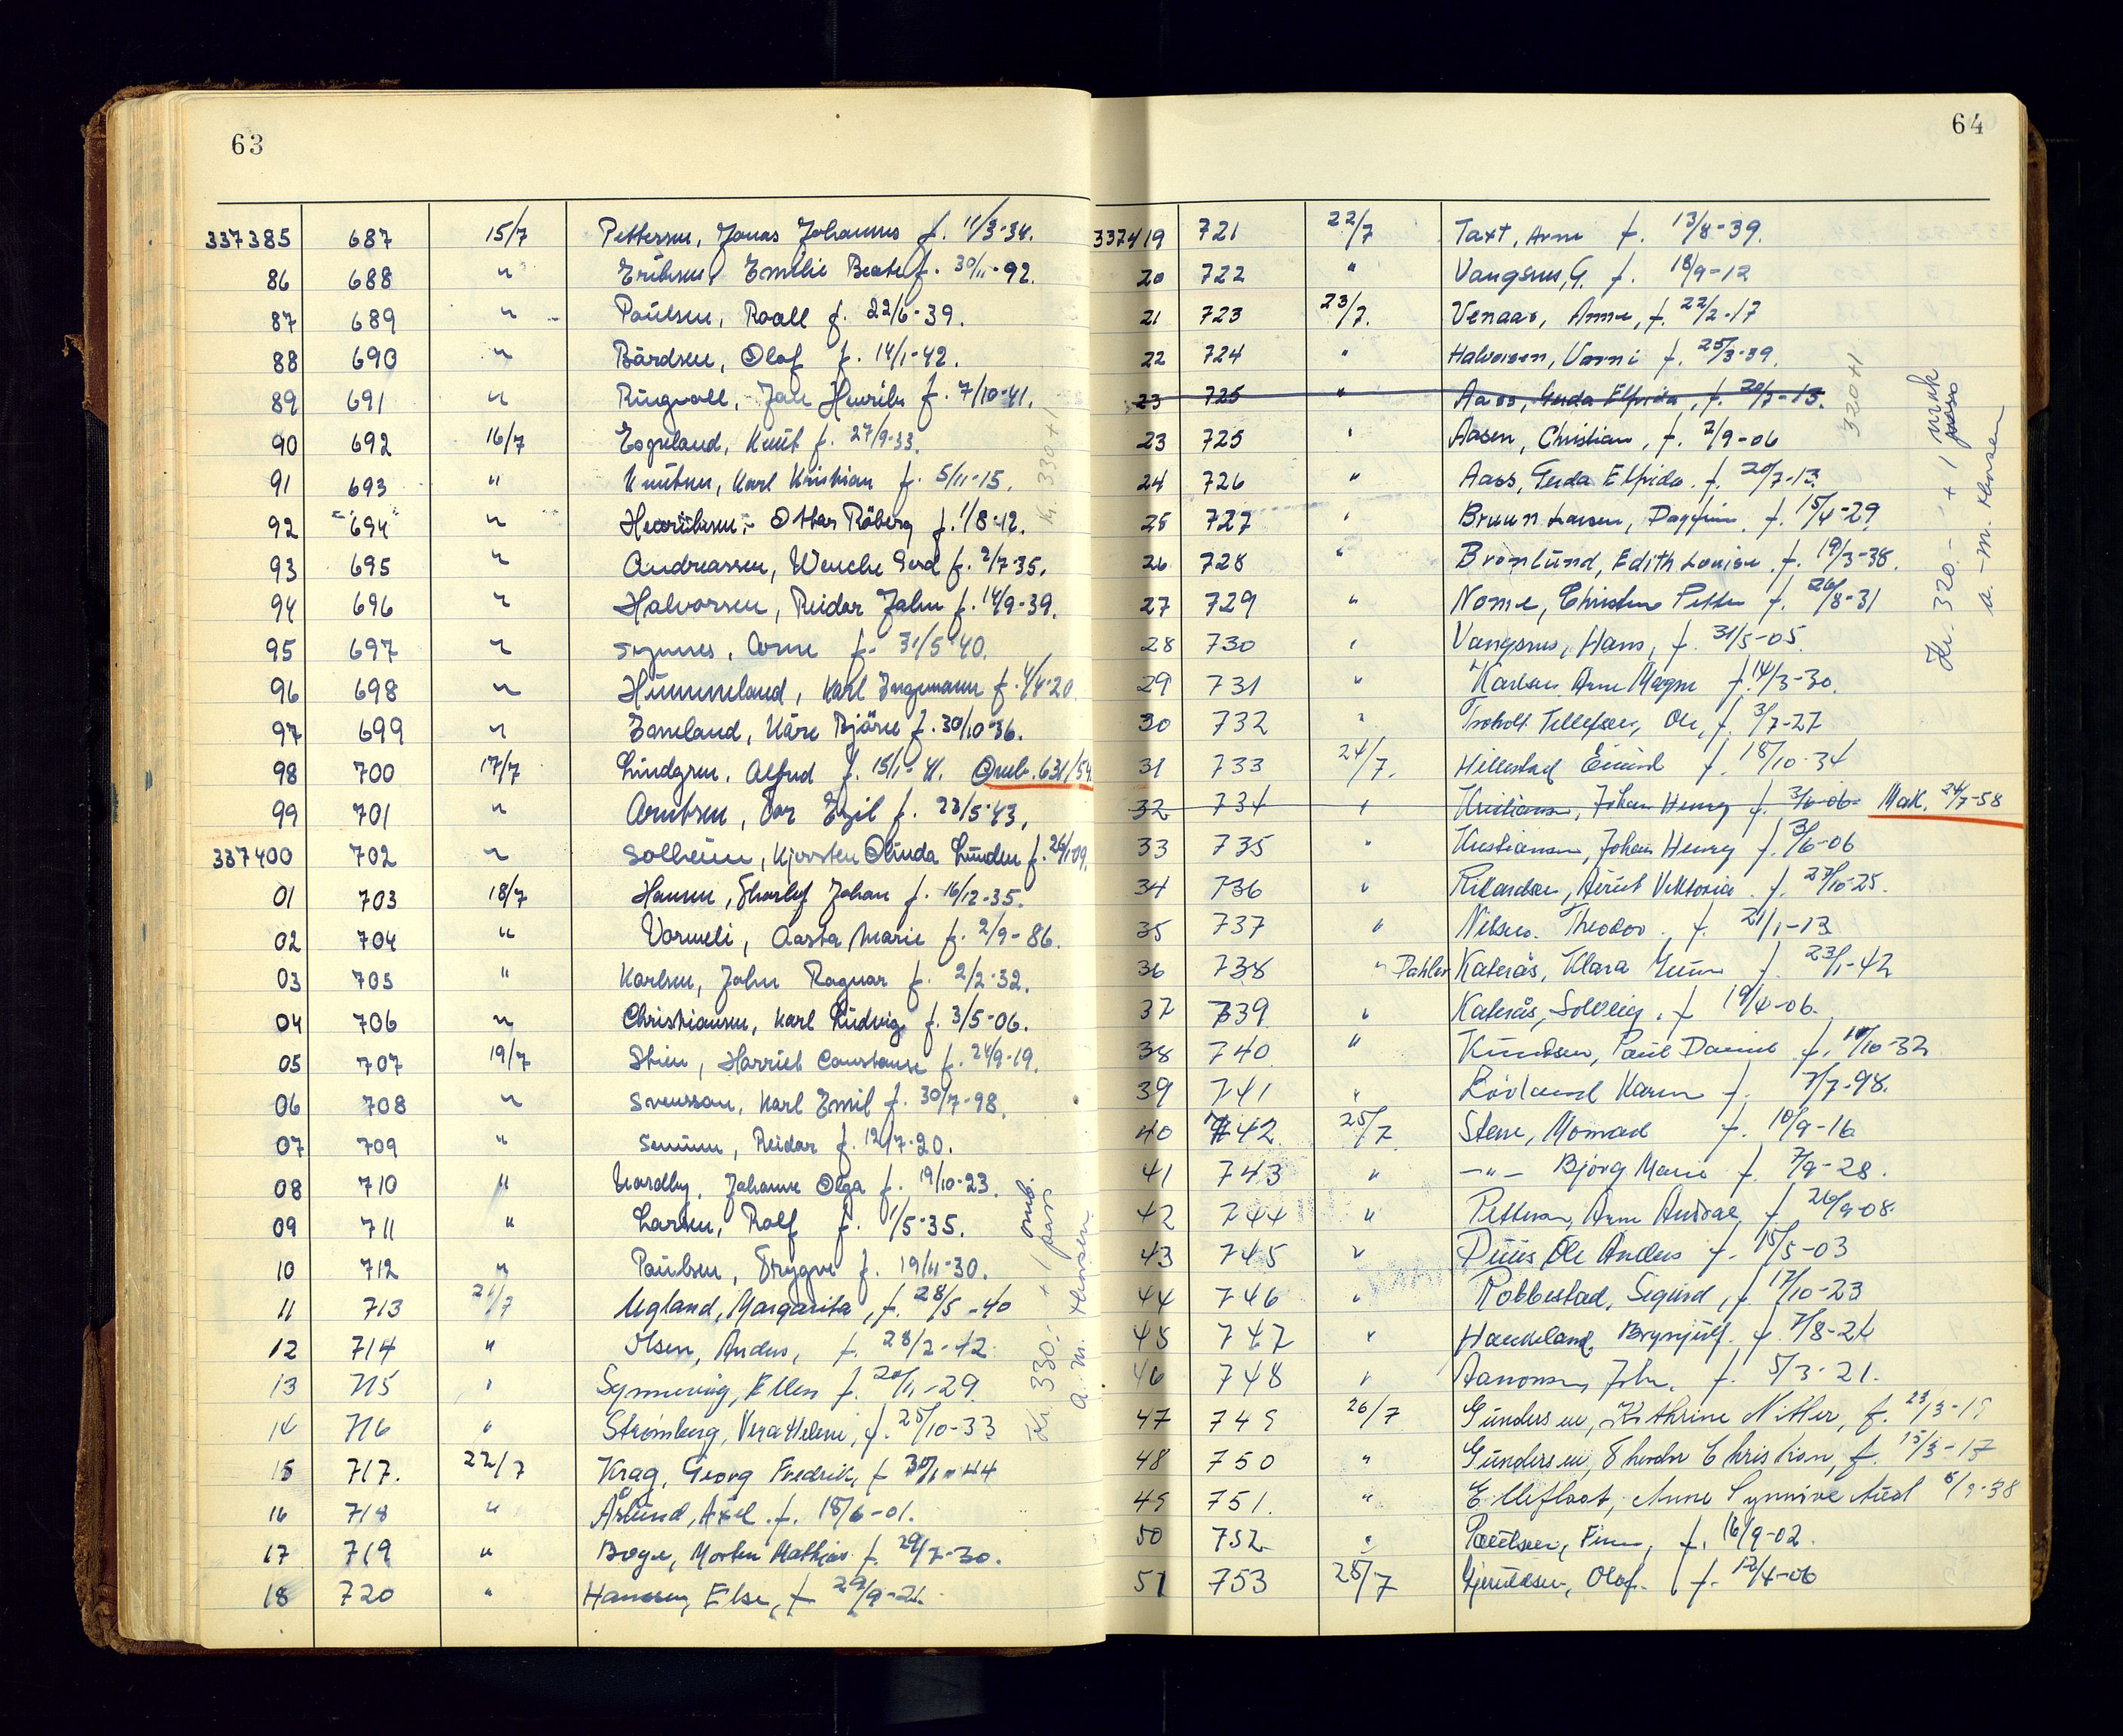 63
337385 687 15/7 Pettersen, Jonas Johannes f. 11/3-34.
86 688 " Eriksen, Emilie Beate f. 30/11-92.
87 689 " Paulsen, Roall f. 22/6-39.
88 690 " Bårdsen, Olof f. 14/1-42.
89 691 " Ringvoll, Jan Henrik f. 7/10-41.
90 692 16/7 Espeland, Knut f. 27/9-33.
91 693 " Knutsen, Karl Kristian f. 5/11-15.
92 "694" " Henriksen, Ottar Råberg f. 1/8-12.
93 695 " Andreassen, Wenche Gerd f. 2/7-35.
94 696 " Halvorsen, Reidar John f. 14/9-39.
95 697 " Synnes, Arne f. 31/5-40.
96 698 " Hummeland, Karl Ingemann f. 4/4-20.
97 699 " Eseland, Kåre Bjarne f. 30/10-36.
98 700 17/7 Lindgren, Alfred f. 15/1-41. Omb. 631/54.
99 701 " Arntsen, Oar Egil f. 23/5-43.
337400 702 " Solheim, Kjersten Olinda Lunden f. 26/1-09.
01 703 18/7 Hansen, Thorleif Johan f. 16/12-35.
02 704 " Vormeli, Aasta Marie f. 2/9-86.
03 705 " Karlsen, John Ragnar f. 2/2-32.
04 706 " Christiansen, Karl Ludvig f. 3/5-06.
05 707 19/7 Stien, Harriet Constanse f. 24/9-19.
06 708 " Svensson, Karl Emil f. 30/7-98.
07 709 " Reidar f. 12/7-20.
08 710 " Nordby, Johanne Olga f. 19/10-23.
09 711 " Larsen, Rolf f. 1/5-35.
10 712 " Paulsen, Trygve f. 19/11-30.
11 713 21/7 Ugland, Margarita, f. 28/5-40
12 714 " Olsen, Anders, f. 28/2-42
13 715 " Synnevåg, Ellen f. 20/11-29.
14 716 " Strømberg, Vera Helene, f. 25/10-33
15 717. 22/7 Krag, Georg Fredrik, f 30/1-44
16 718 " Årlund, Axel. f. 18/6-01.
17 719 " Boge, Morten Mathias f. 29/7-30.
18 720 " Hanssen, Else, f 29/9-21.
Kr. 330+1
Kr. 330.- + 1 omb. pass
a. m. Hansen
64
337419 721 22/7 Taxt, Arne f. 13/8-39.
20 722 " Vangsnes, G. f. 18/9-12
21 723 23/7. Venaas, Anne, f. 22/2-17
22 724 " Halvorsen, Varni f. 25/3-39.
23 725 " Aass, Gerda Elfrida, f. 20/7-13.
23 725 " Aasen, Christian, f. 7/9-06
24 726 " Aass, Gerda Elfrida. f. 20/7-13.
25 727 " Bruun Larsen, Dagfinn. f. 15/4-29
26 728 " Bronlund, Edith Louise. f. 19/3-38.
27 729 " Nome, Christen Petter f. 26/8-31
28 730 " Vangsnes, Hans, f. 31/5-05.
29 731 " Karlsen Arne Magne f. 14/3-30.
30 732 " Tveholt Tellefsen, Ole, f. 3/7-27
31 733 24/7. Hillestad Eivind f. 18/10-34
32 734 " Kristiansen, Johan Henry f. 3/6-06 Mak. 24/7-58
33 735 " Kristiansen, Johan Henry f. 3/6-06
34 736 " Rikardsen, Viktoria. f. 27/10-25.
35 737 " Nilsen. Theodor. f. 21/1-13
36 738 " Dahler Katerås, Klara f. 23/1-42
37 739 " Katerås, Solveig. f 19/4-06.
38 740 " Knudsen, Paul Daniel f. 10/10-32
39 741 " Lövland Karen f. 7/7-98.
40 742 25/7 Stene, Momrad f. 10/9-16
41 743 " -"- Bjørg Marie f. 7/9-28.
42 744 " Petterson, Arne Andreas, f 26/9-08.
43 745 " Duus Ole Anders f. 15/5-03
44 746 " Robbestad, Sigurd, f. 17/10-23
45 747 " Haukeland, Brynjulf. f. 7/8-26
46 748 " Aanonsen, John, f. 5/3-21.
47 749 26/7 Gundersen, Kathrine Nitter, f. 23/3-19
48 750 " Gundersen, Theodor Christian, f. 15/3-17
49 751. " Ellefloot, Anne Synnøve Aud 6/9-38
50 752 " Poulsen, Finn, f. 16/9-02.
51 753 28/7 Gjeruldsen, Olaf. f. 12/4-06
320+1
Kr. 320.- + 1 pass
a.-m. Hansen